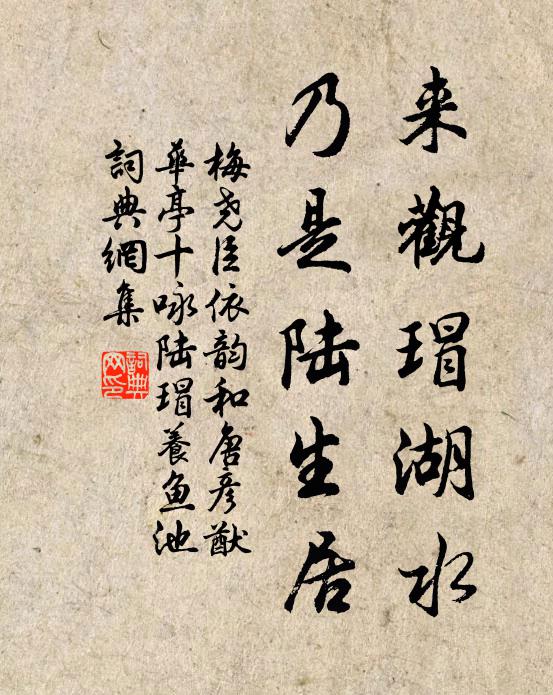 来觀瑁湖水
乃是陆生居
梅尧臣依韵和唐彦猷
華亭十咏陆瑁養魚池
詞典網集
詞典
网印